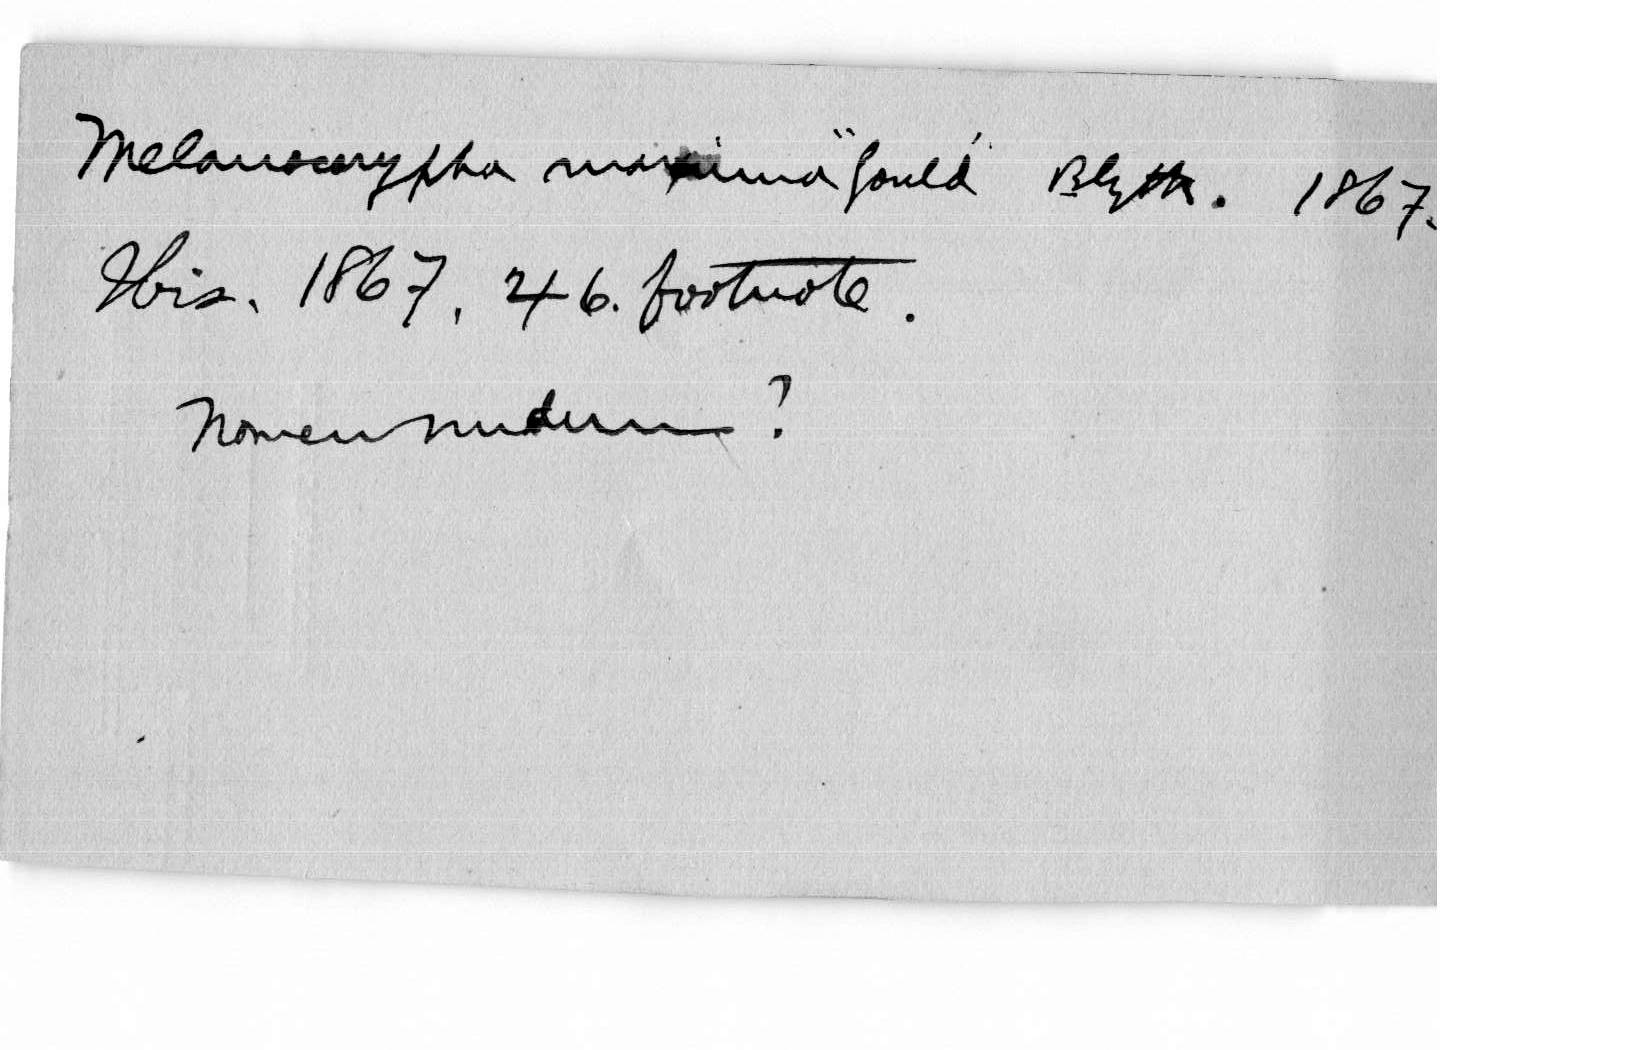 Melanocorypha maxima "Gould" Blyth. 1867.
Ibis. 1867, 46. footnote.
Nomen nudum ?